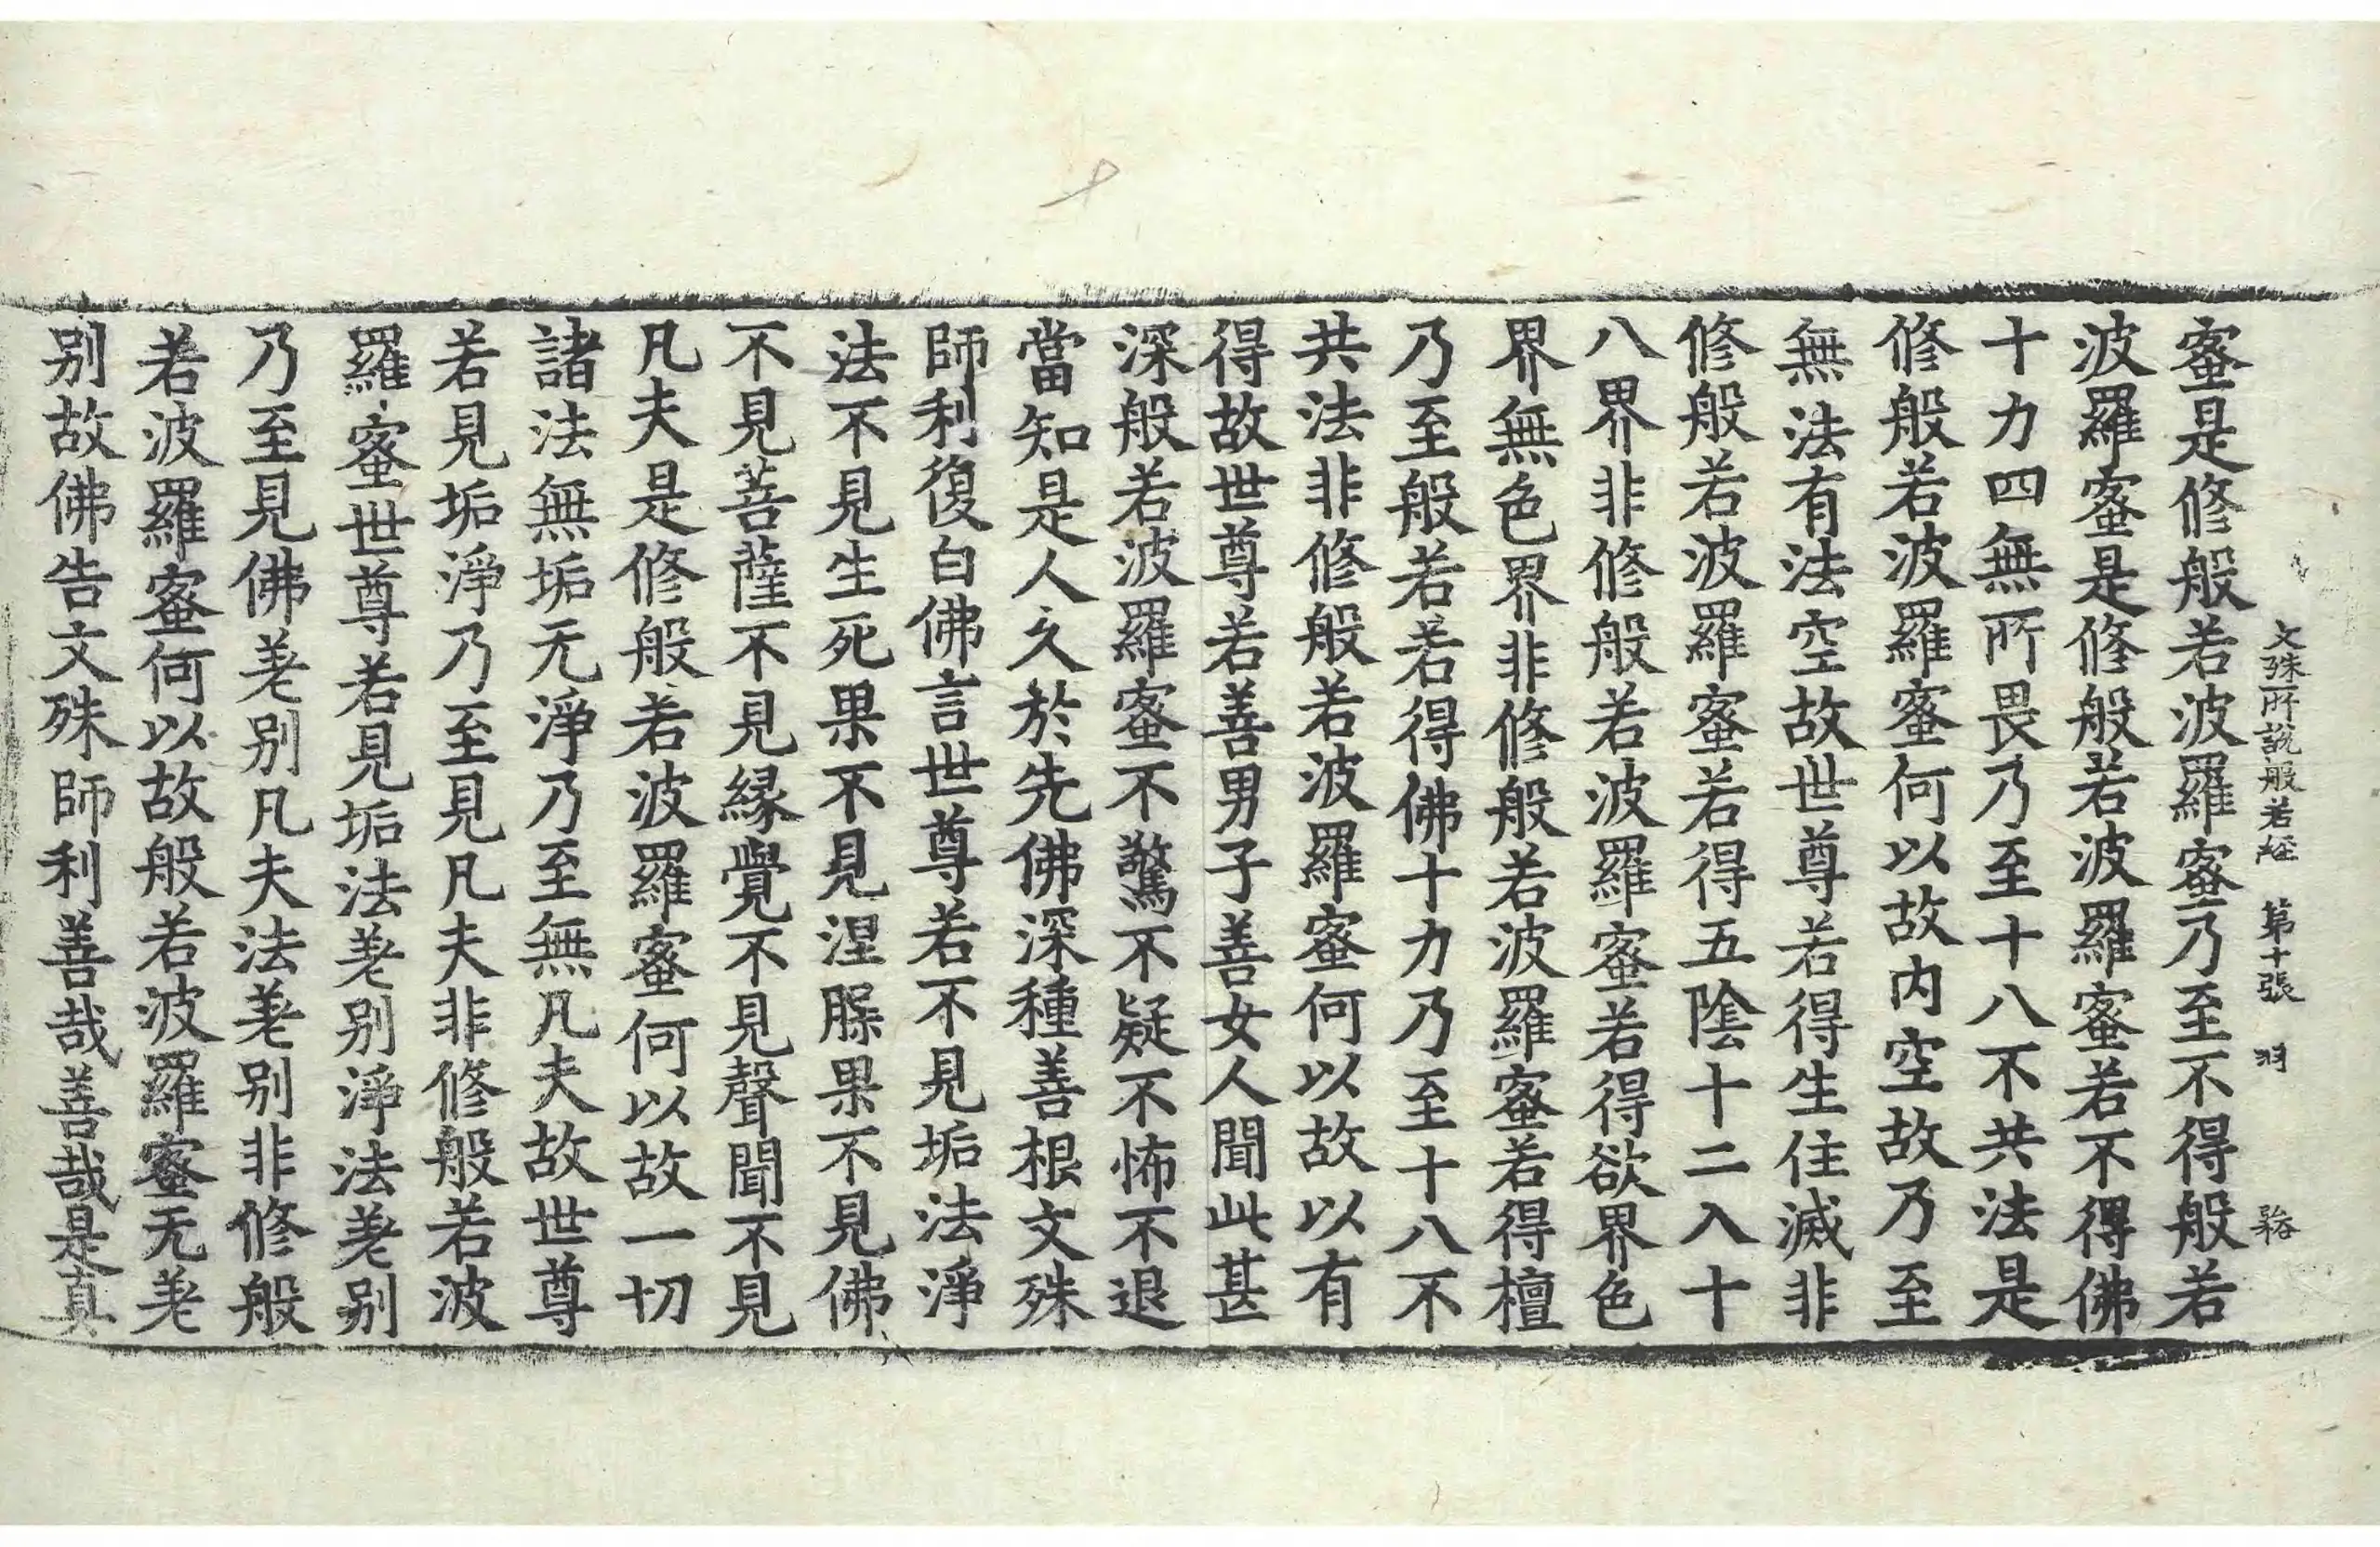 文殊所說般若経 第十張 羽
蜜是修般若波羅蜜乃至不得般若
波羅蜜是修般若波羅蜜若不得佛
十力四無所畏乃至十八不共法是
修般若波羅蜜何以故内空故乃至
無法有法空故世尊若得生住滅非
修般若波羅蜜若得五陰十二入十
八界非修般若波羅蜜若得欲界色
界無色界非修般若波羅蜜若得檀
乃至般若若得佛十力乃至十八不
共法非修般若波羅蜜何以故以有
得故世尊若善男子善女人聞此甚
深般若波羅蜜不驚不疑不怖不退
當知是人久於先佛深種善根文殊
師利復白佛言世尊若不見垢法淨
法不見生死果不見涅槃果不見佛
不見菩薩不見縁覺不見聲聞不見
凡夫是修般若波羅蜜何以故一切
諸法無垢无淨乃至無凡夫故世尊
若見垢淨乃至見凡夫非修般若波
羅蜜世尊若見垢法差别淨法差别
乃至見佛差别凡夫法差别非修般
若波羅蜜何以故般若波羅蜜无差
别故佛告文殊師利善哉善哉是真